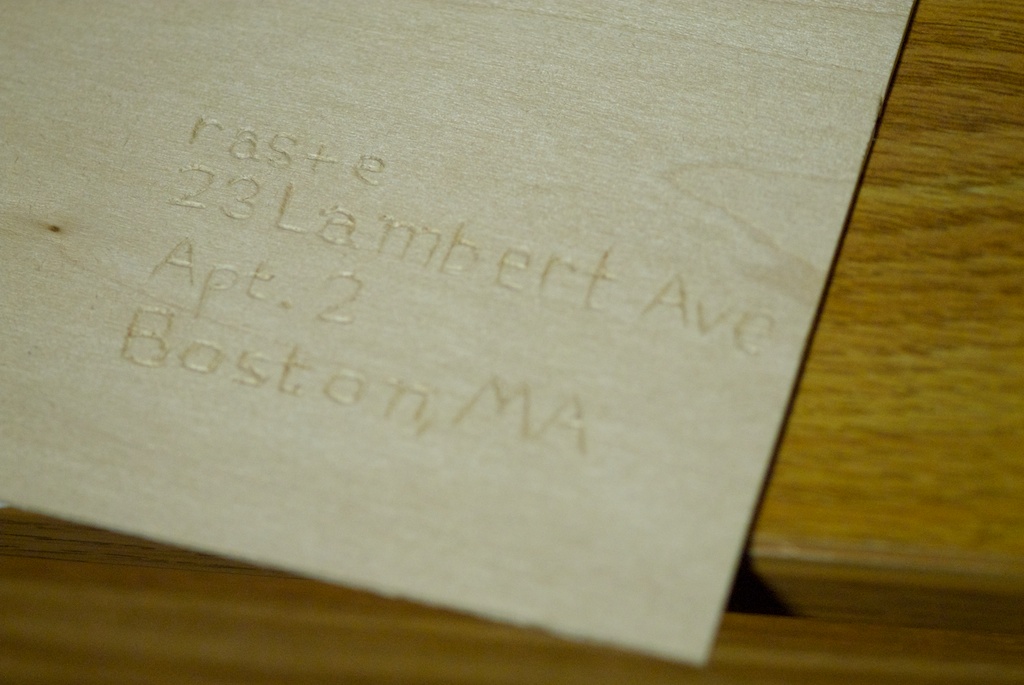 raste
23 Lambert Ave
Apt. 2
Boston, MA